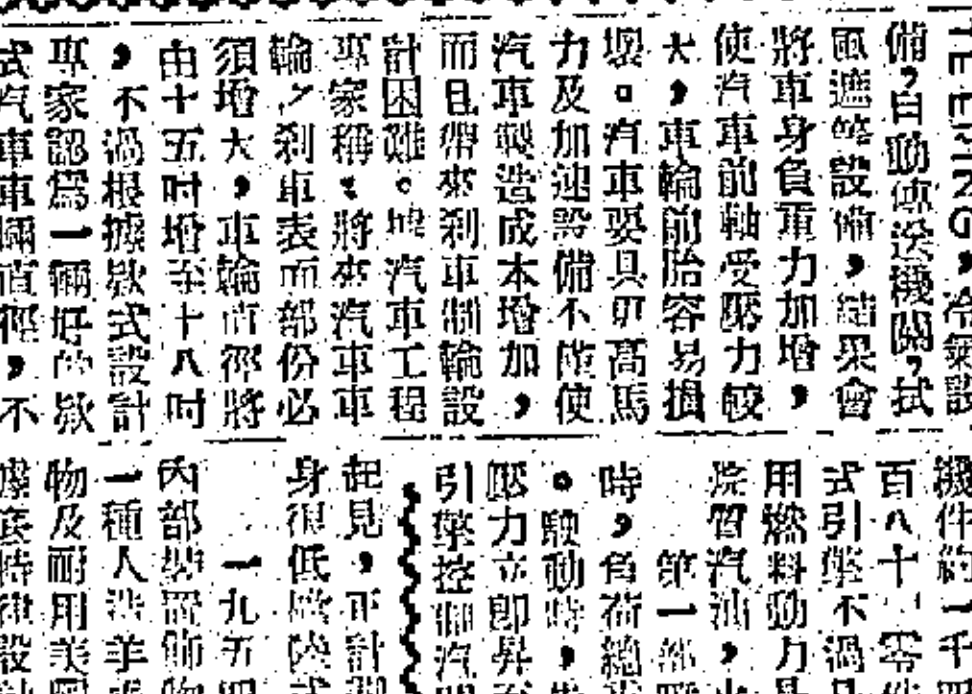 TEERING，冷氣設
備，自動傳送機關，拭
風遮等設備，結果會
將車身負重力加增，
使汽車前軸受壓力較
大，車輪前胎容易損
壞。汽車要具卽高馬
力及加速設備不僅使
汽車製造成本增加，
而且帶來刹車制輪設
計困難。據汽車工程
專家稱：將來汽車車
輪／刹車表面部份必
須增大，車輪直徑將
由十五吋增至十八吋
，不過根據欵式設計
專家認爲一輛好的欵
式汽車車輛直徑，不
機件約一千
百八十 零
式引擎不過
用燃料動力
管汽油，
第一部
時，負荷總
。駛動時，
壓力立即昇
引擎控制汽
起見，可計
身很低
一九五
內部裝置飾
一種人造羊
物及耐用美
特律設